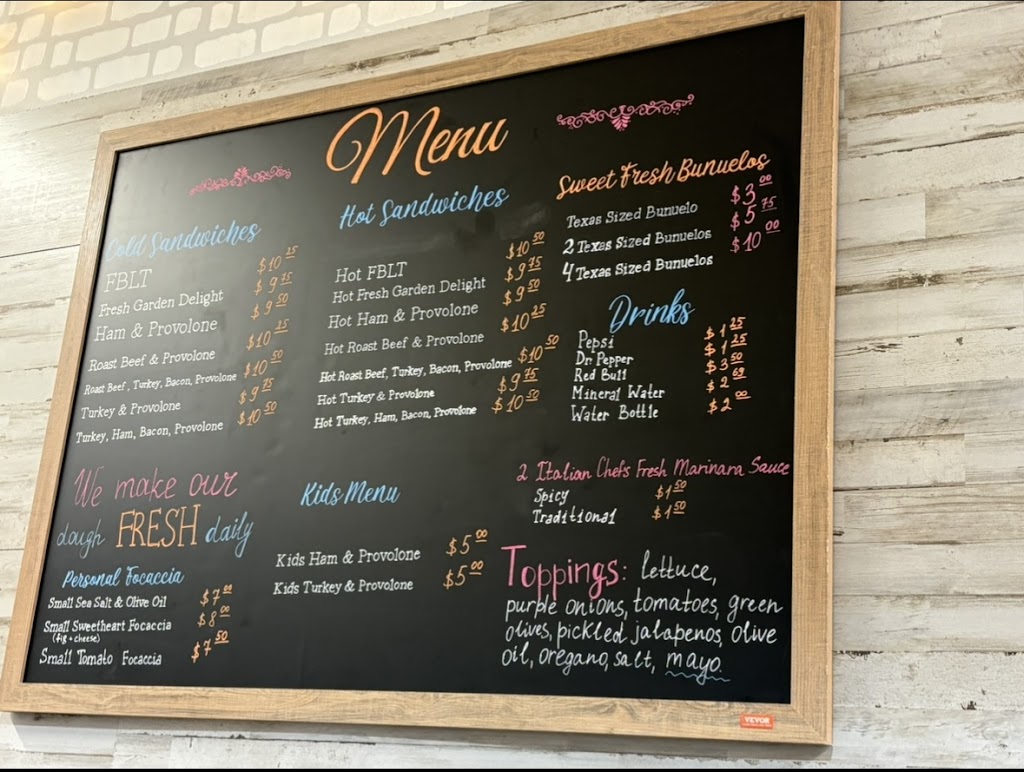 Menu
Cold Sandwiches
FBLT $10.25
Fresh Garden Delight $9.75
Ham & Provolone $9.50
Roast Beef & Provolone $10.25
Roast Beef, Turkey, Bacon, Provolone $10.50
Turkey & Provolone $9.75
Turkey, Ham, Bacon, Provolone $10.50
Hot Sandwiches
Hot FBLT $10.50
Hot Fresh Garden Delight $9.75
Hot Ham & Provolone $9.50
Hot Roast Beef & Provolone $10.25
Hot Roast Beef, Turkey, Bacon, Provolone $10.50
Hot Turkey & Provolone $9.75
Hot Turkey, Ham, Bacon, Provolone $10.50
Sweet Fresh Bunuelos
Texas Sized Bunuelo $3.00
2 Texas Sized Bunuelos $5.75
4 Texas Sized Bunuelos $10.00
Drinks
Pepsi $1.25
Dr Pepper $1.25
Red Bull $3.50
Mineral Water $2.69
Water Bottle $2.00
We make our
dough FRESH daily
Personal Focaccia
Small Sea Salt & Olive Oil $7.00
Small Sweetheart Focaccia $8.00
(fig + cheese)
Small Tomato Focaccia $7.50
Kids Menu
Kids Ham & Provolone $5.00
Kids Turkey & Provolone $5.00
2 Italian Chefs Fresh Marinara Sauce
Spicy $1.50
Traditional $1.50
Toppings: lettuce,
purple onions, tomatoes, green
olives, pickled jalapenos, olive
oil, oregano, salt, mayo
VEVOR